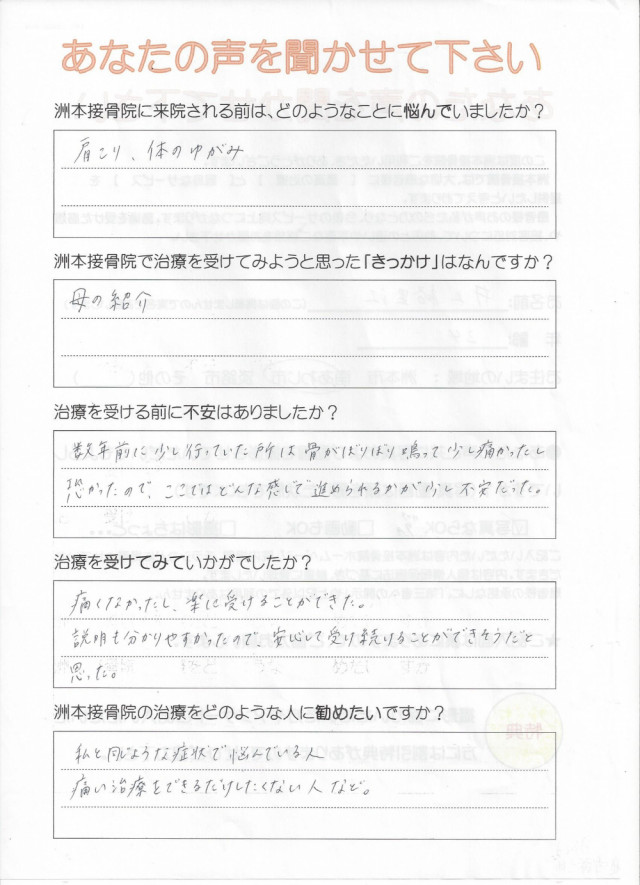 あなたの声を聞かせて下さい
洲本接骨院に来院される前は、どのようなことに悩んでいましたか？
肩こり、体のゆがみ
洲本接骨院で治療を受けてみようと思った「きっかけ」はなんですか？
母の紹介
治療を受ける前に不安はありましたか？
数年前に少し行っていた所は骨がばりばり鳴って少し痛かったし
恐かったので、ここではどんな感じで進められるかが少し不安だった。
治療を受けてみていかがでしたか？
痛くなかったし、楽に受けることができた。
説明も分かりやすかったので、安心して受け続けることができそうだと
思った。
洲本接骨院の治療をどのような人に勧めたいですか？
私と同じような症状で悩んでいる人
痛い治療をできるだけしたくない人など。